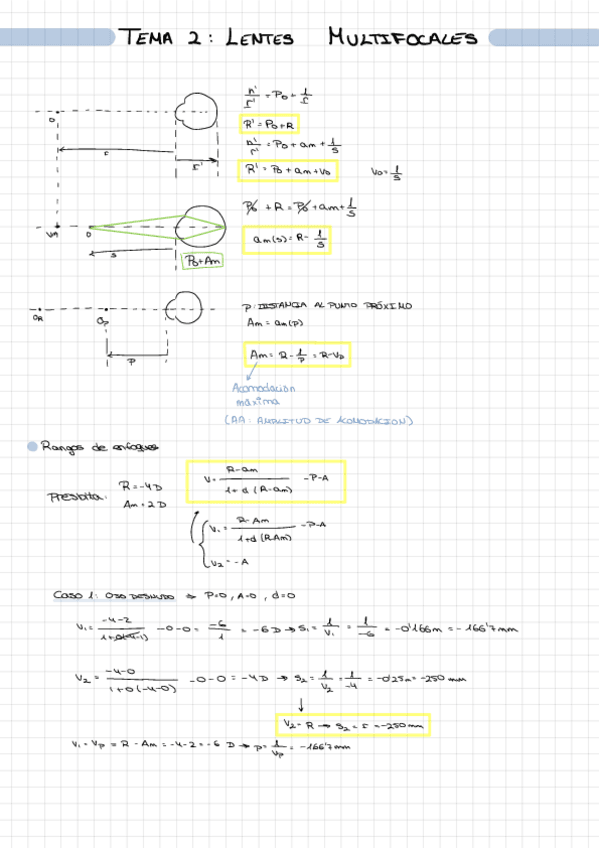 TEMA 2: LENTES MULTIFOCALES
n'/r' = P₀ + 1/r
R' = P₀ + R
n'/r' = P₀ + am + 1/s
R' = P₀ + am + V₀
V₀ = 1/s
O
r
r'
P₀ + R = P₀ + am + 1/s
am(s) = R - 1/s
O
s
P₀ + Am
P: DISTANCIA AL PUNTO PRÓXIMO
Am = am(p)
O_R
O_p
P
Am = R - 1/p = R - V₀
Acomodación
máxima
(AA: AMPLITUD DE ACOMODACION)
Rangos de enfoques
Présbita:
R = -4D
Am = 2D
V = R-am / 1+d(R-am) - P - A
V₁ = R-Am / 1+d(RAm) - P - A
V₂ = -A
CASO 1: OJO DESNUDO ⇒ P=0, A=0, d=0
V₁ = -4-2 / 1+0(-4-1) -0-0 = -6/1 = -6D → S₁ = 1/V₁ = 1/-6 = -0'166m = -166'7mm
V₂ = -4-0 / 1+0(-4-0) -0-0 = -4D → S₂ = 1/V₂ = 1/-4 = -0'25m = -250 mm
V₂ = R → S₂ = r = -250mm
V₁ = Vp = R - Am = -4-2 = -6 D → p = 1/Vp = -166'7mm